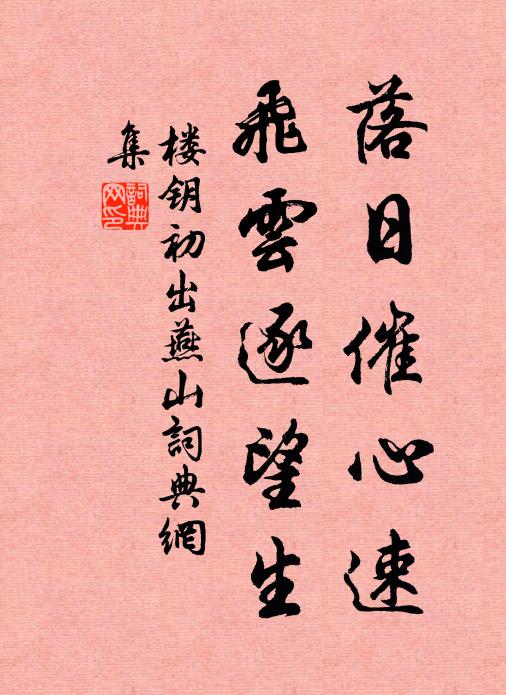 落日催心速
飛雲逐望生
楼钥初出燕山詞典網
集
詞典网印